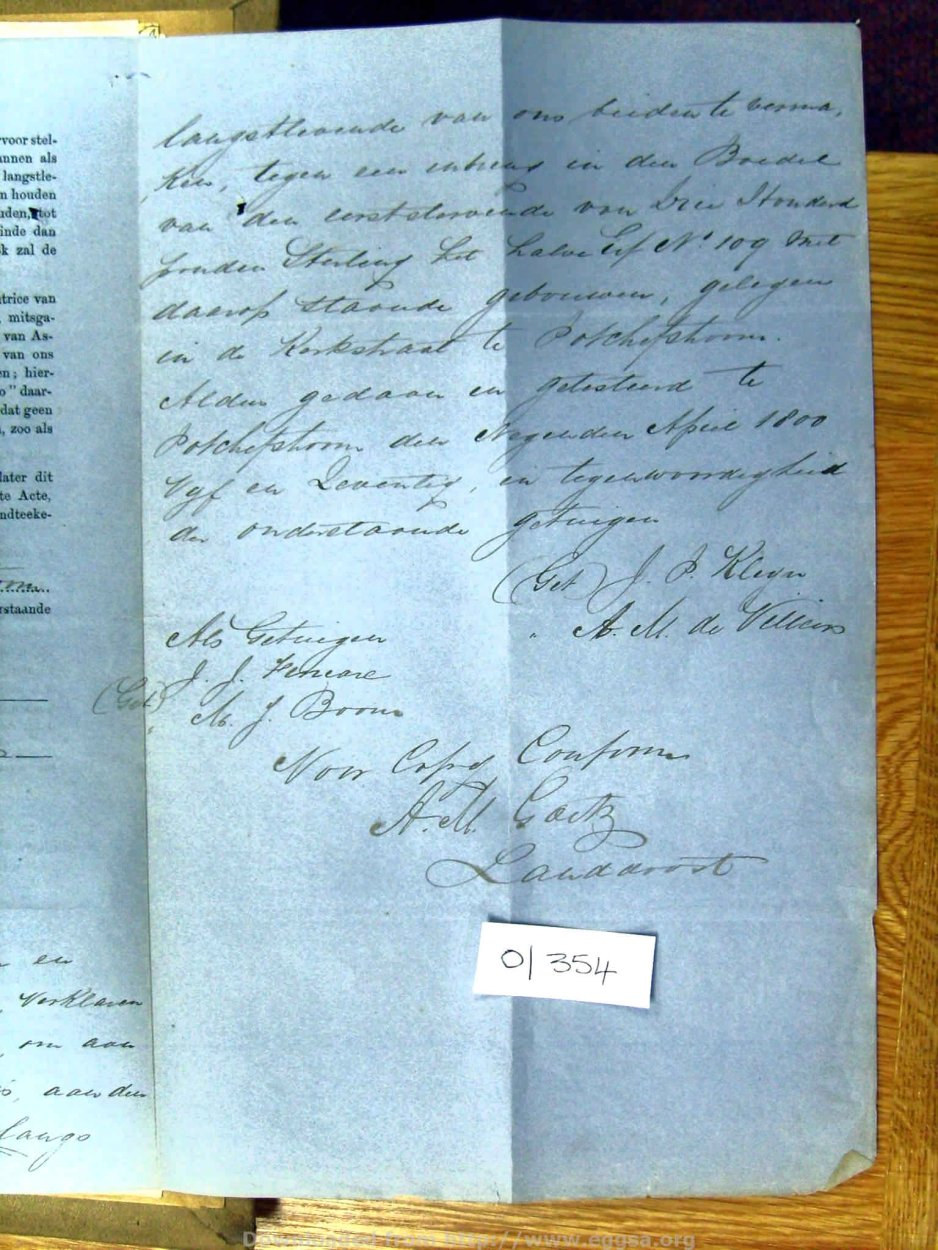 voor stel-
annen als
langstle-
n houden
uden, tot
inde dan
k zal de
trice van
, mitsga-
van As-
van ons
en; hier-
o" daar-
dat geen
, zoo als
later dit
te Acte,
ndteeke-
rstaande
en
Verklaren
om aan
aan den
langs
langstlevende van ons beiden te verma,
ken, tegen een inbreng in den Boedel
van den eerststervende von Drie Honderd
ponden Sterling het halve Erf No 109 met
daarop staande gebouwen, gelegen
in de Kerkstraat te Potchefstroom.
Aldus gedaan en getesteerd te
Potchefstroom den Negenden April 1800
Vyf en Zeventig, in tegenwoordigheid
der onderstaande getuigen
(Get) J. P. Kleyn
" A. M. de Villiers
Als Getuigen
(Get) J. J.
" M. J. Boom
Voor Copy Conform
A. M. Goetz
Landdrost
01 354
Downloaded from http://www.eggsa.org